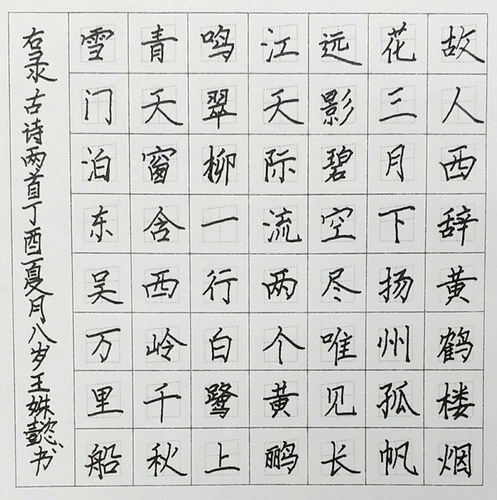 故人西辞黄鹤楼烟
花三月下扬州孤帆
远影碧空尽唯见长
江天际流两个黄鹂
鸣翠柳一行白鹭上
青天窗含西岭千秋
雪门泊东吴万里船
右录古诗两首丁酉夏月八岁王姝懿书